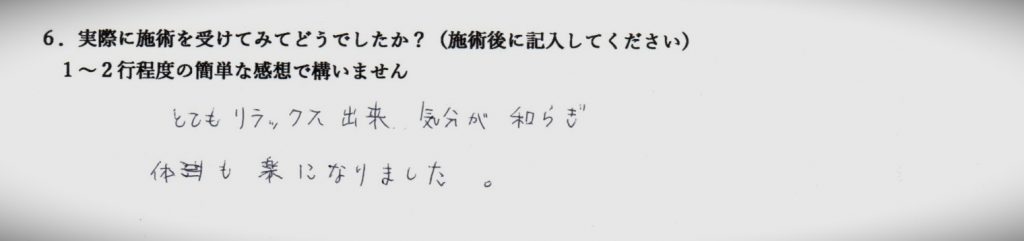 ６．実際に施術を受けてみてどうでしたか？（施術後に記入してください）
１～２行程度の簡単な感想で構いません
とてもリラックス出来、気分が和らぎ
体も楽になりました。